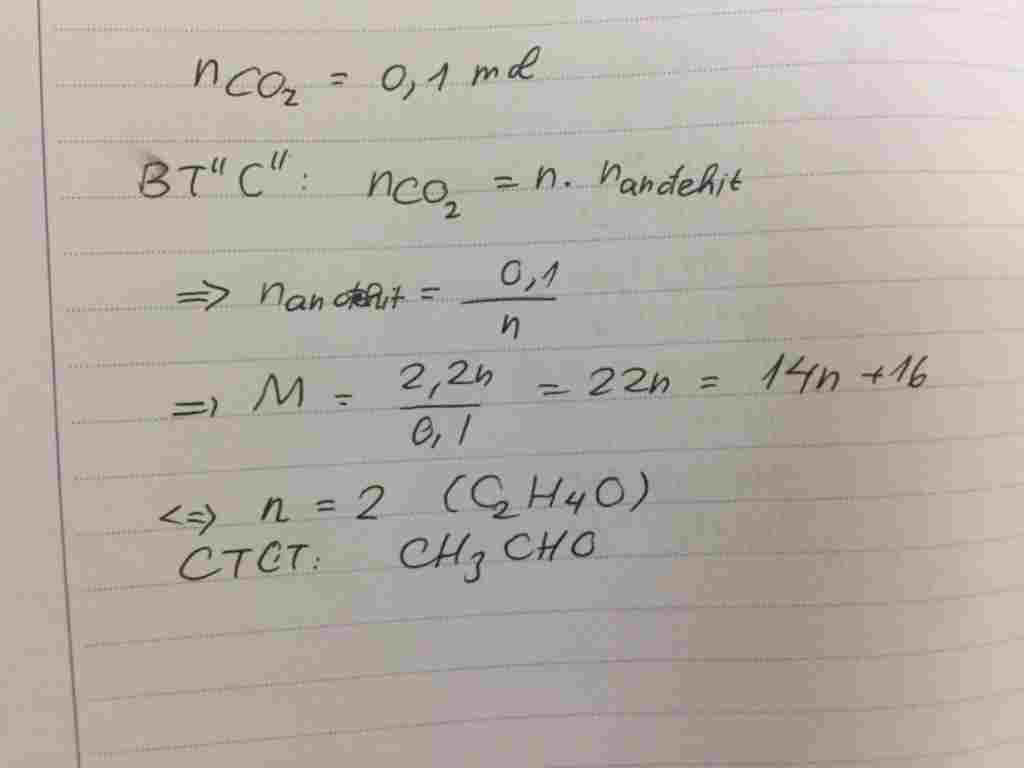 nCO₂ = 0,1 mol
BT"C": nCO₂ = n. nandehit
=> nandehit = 0,1/n
=> M = 2,2n/0,1 = 22n = 14n +16
<=> n = 2 (C₂H₄O)
CTCT: CH₃CHO